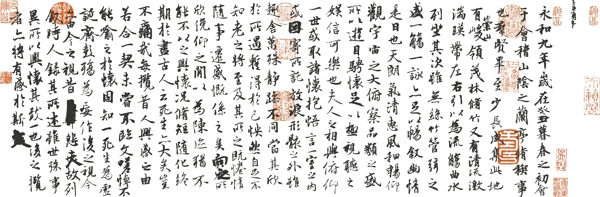 永和九年歲在癸丑暮春之初會
于會稽山陰之蘭亭脩稧事
也群賢畢至少長咸集此地
有崇山峻領茂林脩竹又有清流激
湍暎帶左右引以為流觴曲水
列坐其次雖無絲竹管弦之
盛一觴一詠亦足以暢敘幽情
是日也天朗氣清惠風和暢仰
觀宇宙之大俯察品類之盛
所以遊目騁懷足以極視聽之
娛信可樂也夫人之相與俯仰
一世或取諸懷抱悟言一室之內
或因寄所託放浪形骸之外雖
趣舍萬殊靜躁不同當其欣
於所遇暫得於己怏然自足不
知老之將至及其所之既惓情
隨事遷感慨係之矣向之所
欣俛仰之閒以為陳跡猶不
能不以之興懷況脩短隨化終
期於盡古人云死生亦大矣豈
不痛哉每攬昔人興感之由
若合一契未嘗不臨文嗟悼不
能喻之於懷固知一死生為虛
誕齊彭殤為妄作後之視今
亦由今之視昔悲夫故列
敘時人錄其所述雖世殊事
異所以興懷其致一也後之攬
者亦將有感於斯文